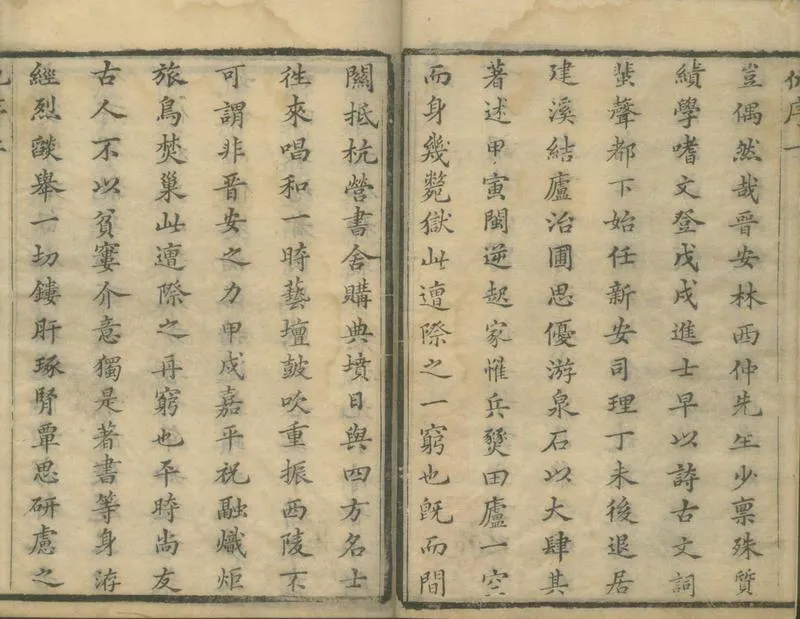 豈偶然哉晉安林西仲先生少稟殊質
績學嗜文登戊戌進士早以詩古文詞
蜚聲都下始任新安司理丁未後退居
建溪結廬治圃思優游泉石以大肆其
著述甲寅閩逆起家惟兵燹田廬一空
而身幾斃獄此遭際之一窮也旣而間
關抵杭營書舍購典墳日與四方名士
徃來唱和一時藝壇鼓吹重振西陵不
可謂非晉安之力甲戍嘉平祝融熾炬
旅鳥焚巢此遭際之再窮也平時尚友
古人不以貧窶介意獨是著書等身洊
經烈燄舉一切鏤肝琢腎覃思研慮之